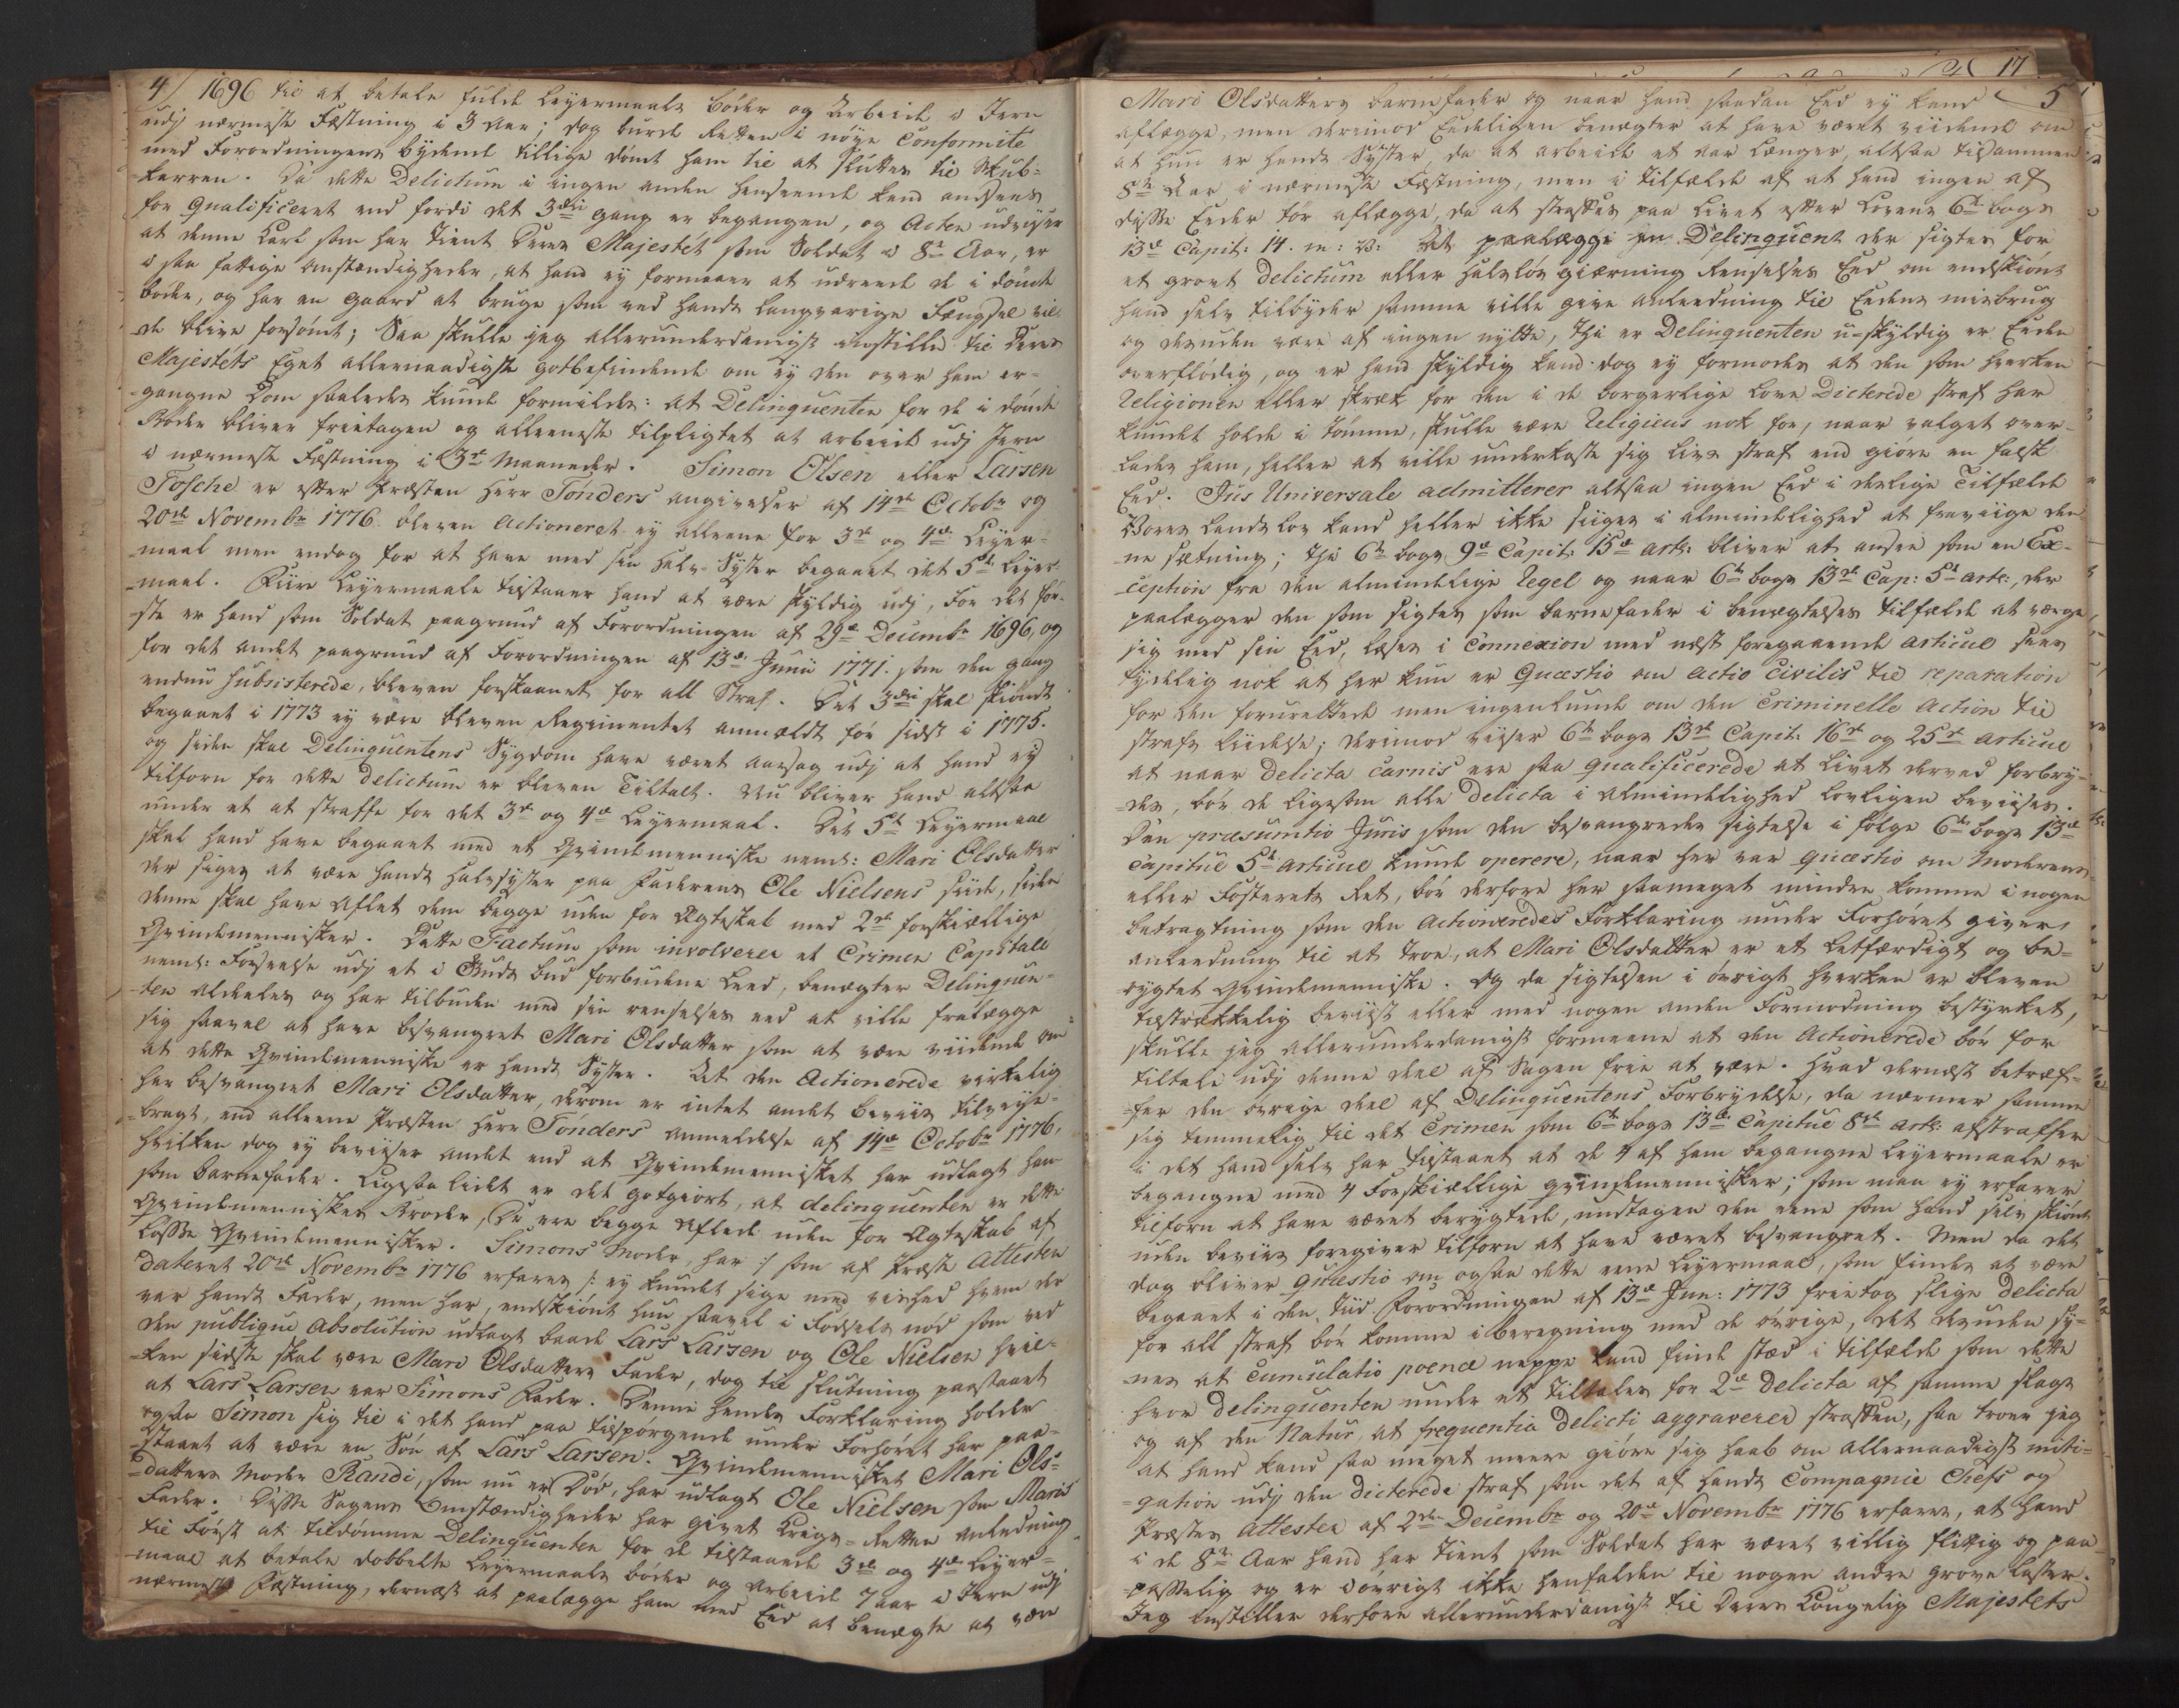 4/ 1696 til at betale fulde Leyermaals bøder og Arbeide i Jern
udj nærmeste Fæstning i 3 Aar; dog burde Retten i nøye Conformite
med Forordningens bydende tillige dømt ham til at sluttes til Skub-
karren. Da dette Delictum i ingen anden henseende kand ansees
for qualificeret end fordi det 3die gang er begangen, og Acten udviser
at denne Karl som har tient Deres Majestet som Soldat i 8te Aar, er
i saa fattige omstændigheder, at hand ey formaaer at udreede de i dømte
bøder, og har en gaard at bruge som ved hands langvarige Fængsel vil-
de blive forsømt; Saa skulle jeg allerunderdanigst indstille til Deres
Majestets Eget allernaadigste gotbefindende om ey den over ham er-
gangne Dom saaledes kunde formildes: At Delinquenten for de i dømte
Bøder bliver frietagen og alleeneste tilpligtet at arbeide udj Jern
i nærmeste Fæstning i 3de Maaneder. Simon Olsen eller Larsen
Fosche er efter Præsten Herr Tønders angivelser af 14de Octobr og
20de Novembr 1776 bleven Actioneret ey alleene for 3de og 4de Leyer-
maal men endog for at have med sin Halv-Syster begaaet det 5te Leyer-
maal. Fiire Leyermaale tilstaaer hand at være skyldig udj, For det før-
ste er hand som Soldat paagrund af Forordningen af 29de Decembr 1696, og
for det andet paagrund af Forordningen af 13de Junii 1771. som den gang
endnu subsisterede, bleven forskaanet for all Straf. Det 3die skal skiøndt
begaaet i 1773 ey være bleven Regimentet anmældt før sidst i 1775.
og siden skal Delinquentens Sygdom have været aarsag udj at hand ey
tilforn for dette delictum er bleven Tiltalt. Nu bliver hand altsaa
under et at straffe for det 3de og 4de Leyermaal. Det 5te Leyermaal
skal hand have begaaet med et Qvindemenniske neml: Mari Olsdatter
der siges at være hands halvsyster paa Faderens Ole Nielsens siide, siden
denne skal have Aflet dem begge uden for Ægteskab med 2de forskiællige
Qvindemennisker. Dette Factum som involverer et Crimen Capitale
neml: Forseelse udj et i Guds bud forbudene Leed, benægter Delinquen-
ten aldeeles og har tilbuden med sin renselses eed at ville fralægge
sig saavel at have besvangret Mari Olsdatter som at være viidende om
at dette Qvindemenniske er hands Syster. At den Actionerede virkelig
har besvangret Mari Olsdatter, derom er intet andet beviis tilveye-
bragt, end alleene Præsten Herr Tønders anmeldelse af 14de Octobr 1776,
hvilken dog ey beviiser andet end at Qvindemennisket har udlagt ham
som barnefader. Ligesaa lidet er det gotgiort, at delinquenten er dette
Qvindemenniskes Broder, De ere begge Aflede uden for Ægteskab af
løsse Qvindemennisker. Simons Moder har /: som af Præste Attesten
dateret 20de Novembr 1776 erfares :/ ey kundet sige med vished hvem der
var hands Fader, men har, endskiønt hun saavel i Fødsels nød som ved
den publique absolution udlagt baade Lars Larsen og Ole Nielsen hvil-
ken sidste skal være Mari Olsdatters Fader, dog til slutning paastaaet
at Lars Larsen var Simons Fader. Denne hendes Forklaring holder
ogsaa Simon sig til i det hand paa tilspørgende under Forhøret har paa-
staaet at være en Søn af Lars Larsen. Qvindemennisket Mari Ols-
datters Moder Randi, som nu er Død, har udlagt Ole Nielsen som Maris
Fader. Disse Sagens Omstændigheder har givet Krigs-Retten anledning
til Først at tildømme Delinquenten for de tilstaaede 3de og 4de Leyer-
maal at betale dobbelte Leyermaals bøder og Arbeide 7 Aar i Jern udj
nærmeste Fæstning, dernæst at paalægge ham med Eed at benægte at være
17
5
Mari Olsdatters barnefader og naar hand saadan Eed ey kand
aflægge, men derimod Eedeligen benægter at have været viidende om
at hun er hands Syster, da at arbeide et aar længer, altsaa tilsammen
8te Aar i nærmeste Fæstning, men i tilfælde af at hand ingen af
disse Eeder tør aflægge, da at straffes paa Livet efter Lovens 6te bogs
13de Capit: 14. At paalægge en Delinquent der sigtes for
et grovt delictum eller halsløs giærning Renselses Eed om endskiønt
hand selv tilbyder samme ville give anleedning til Eedens misbrug
og desuden være af ingen nytte, thi er Delinquenten u-skyldig er Eeden
overflødig, og er hand skyldig kand dog ey formodes at den som hverken
Religionen eller skræk for den i de borgerlige Love Dicterede straf har
kundet holde i tømme, skulle være Religieus nok for, naar valget over-
lades ham, heller at ville underkaste sig livs straf end giøre en falsk
Eed. Jus Universale admitterer altsaa ingen Eed i deslige Tilfælde
Vores Lands lov kand heller ikke siiges i almindelighed at fraviige den-
ne sætning; thi 6te bogs 9de Capit: 15de artc: bliver at ansee som en Ex-
ception fra den almindelige Regel og naar 6te bogs 13de Cap: 5te artc:, der
paalægger den som sigtes som barnefader i benægtelses tilfælde at værge
sig med sin Eed, læses i Connexion med næst foregaaende articul sees
tydelig nok at her kun er Quæstio om actio civilis til reparation
for den forurettede men ingenlunde om den Criminelle action til
strafs Liidelse; derimod viiser 6te bogs 13de Capit: 16de og 25de articul
at naar delicta carnis ere saa qualificerede at Livet derved forbry-
des, bør de ligesom alle delicta i Almindelighed lovligen beviises.
Den præsumtio Juris som den besvangredes sigtelse i følge 6te bogs 13de
Capitul 5te articul kunde operere, naar her var quæstio om Moderens
eller Fosterets Ret, bør derfore her saameget mindre komme i nogen
betragtning som den Actioneredes Forklaring under Forhøret giver
anleedning til at troe, at Mari Olsdatter er et letfærdigt og be-
rygtet Qvindemenniske. Og da sigtelsen i øvrigt hverken er bleven
tilstrækkelig beviist eller med nogen anden Formodning bestyrket,
skulle jeg allerunderdanigst formeene at den Actionerede bør for
tiltale udj denne deel af Sagen frie at være. Hvad dernæst betræf-
fer den øvrige deel af Delinquentens Forbrydelse, da nærmer samme
sig temmelig til det Crimen som 6te bogs 13de Capitul 8de artc: afstraffer
i det hand selv har tilstaaet at de 4 af ham begangne Leyermaale er
begangne med 4 Forskiællige qvindemennisker; som man ey erfarer
tilforn at have været berygtede, undtagen den eene som hand selv skiønt
uden beviis foregiver tilforn at have været besvangret. Men da det
dog bliver quæstio om ogsaa dette eene Leyermaal, som findes at være
begaaet i den Tiid Forordningen af 13de Jun: 1773 frietog slige delicta
for all straf bør komme i beregning med de øvrige, det desuden sy-
nes at cumulatio poenæ neppe kand finde stæd i tilfælde som dette
hvor delinquenten under et tiltales for 2de delicta af samme slags
og af den Natur, at frequentia delicti aggraverer straffen, saa troer jeg
at hand kand saa meget meere giøre sig haab om allernaadigst miti-
gation udj den dicterede straf som det af hands Compagnie Chefs og
Præstes Attester af 2den Decembr og 20de Novembr 1776 erfares, at hand
i de 8te Aar hand har tient som Soldat har været villig flittig og paa-
passelig og er i øvrigt ikke henfalden til nogen andre grove laster.
Jeg indstiller derfore allerunderdanigst til Deres Kongelig Majestets